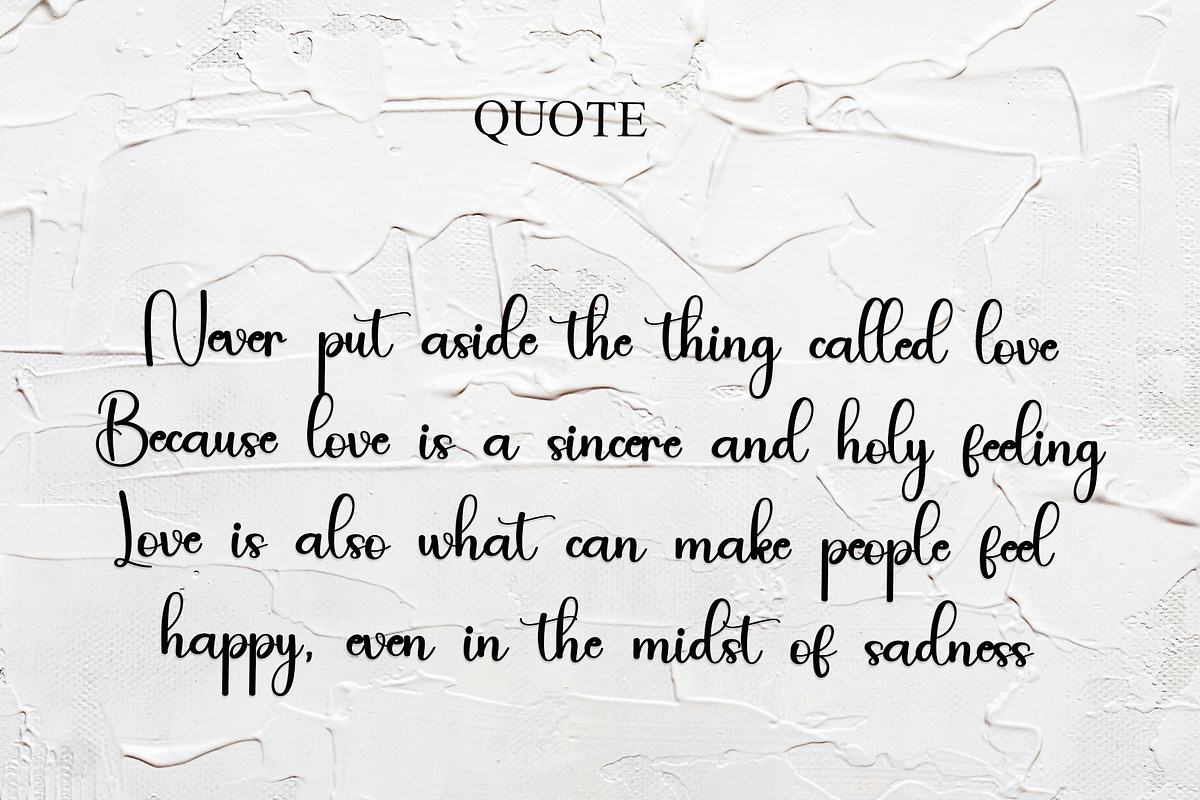 QUOTE
Never put aside the thing called love
Because love is a sincere and holy feeling
Love is also what can make people feel
happy, even in the midst of sadness